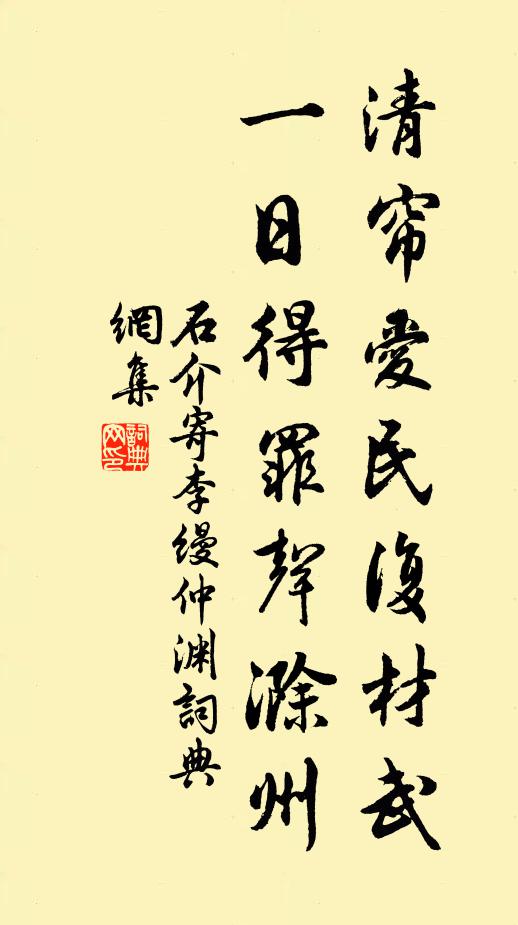 清帘愛民復材武
一日得罪聲滁州
石介寄李縵仲淵詞典
網集
詞典
网印